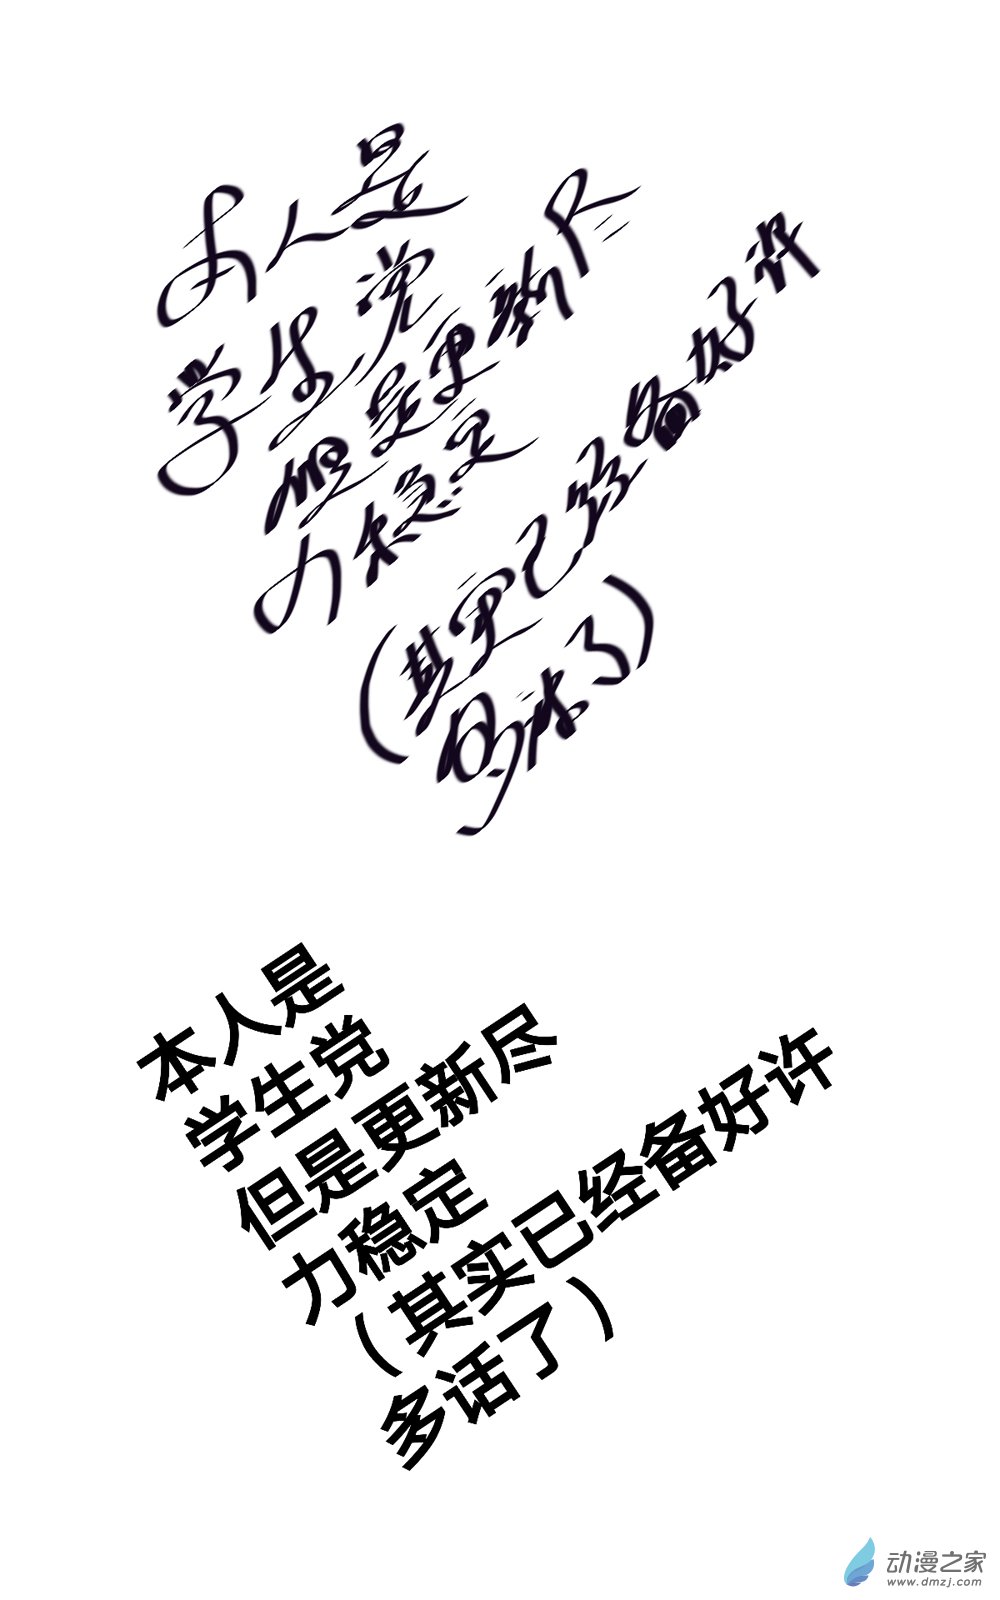 本人是
学生党
但是更新尽
力稳定
（其实已经备好许
多话了）
本人是
学生党
但是更新尽
力稳定
（其实已经备好许
多话了）
动漫之家
www.dmzj.com